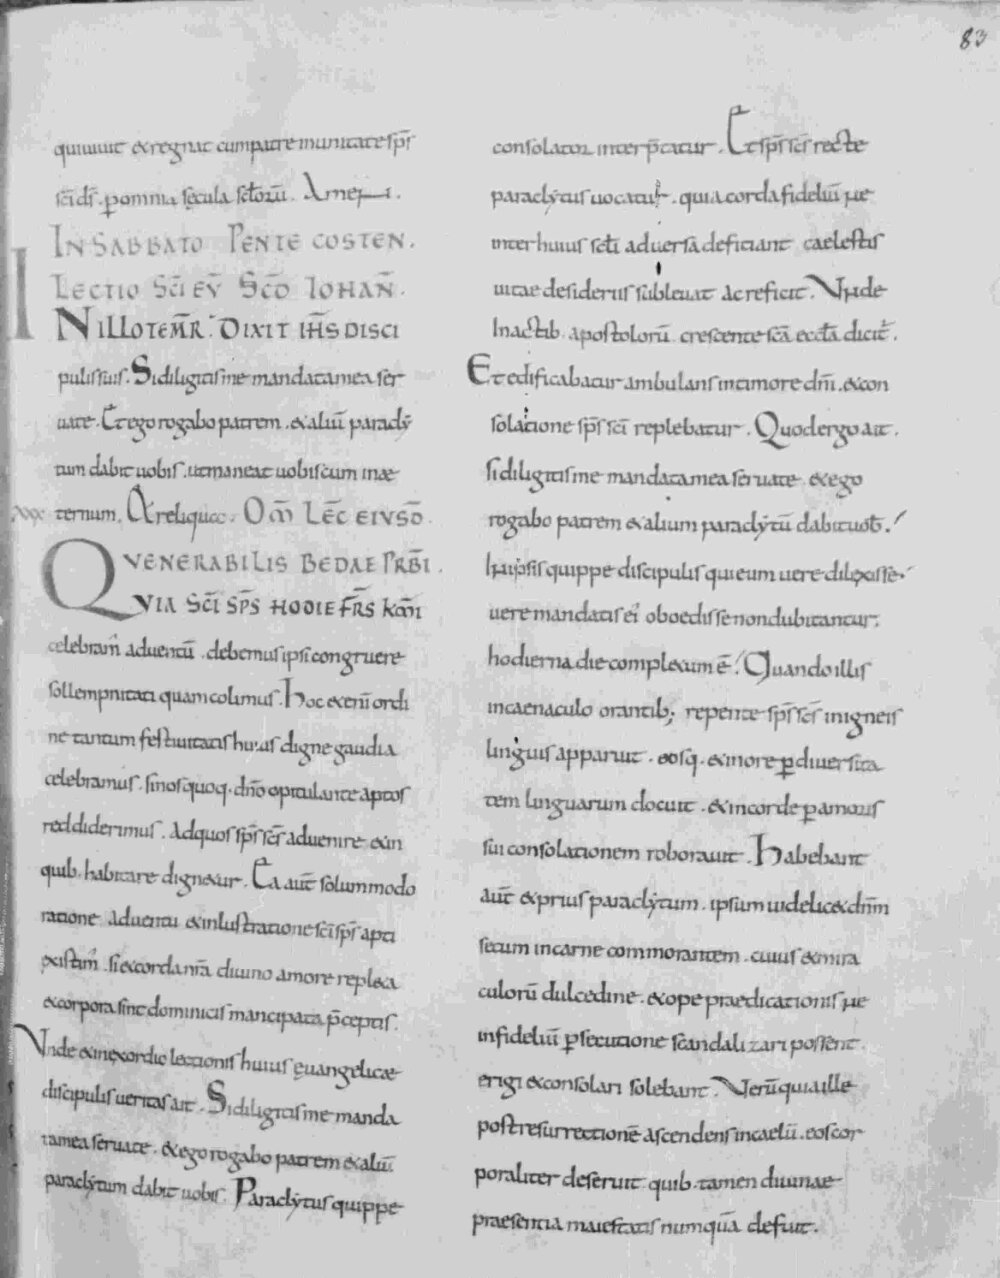 83
quiuiuit & regnat cum patre in unitate sp̄s
sc̄i ds̄. per omnia sęcula sc̄lorū. Amen.
IN SABBATO PENTECOSTEN.
LECTIO SC̄I EV̄ SC̄D IOHAN̄.
IN ILLO TEMR̄. DIXIT IH̄S DISCI
pulis suis. Si diligitis me mandata mea ser
uate. Et ego rogabo patrem. & aliū paracly
tum dabit uobis. ut maneat uobiscum in ae
ternum. & reliqua. OM̄ LEC̄ EIVSD̄
VENERABILIS BEDAE PRB̄I.
QVIA SC̄I SP̄S HODIE FR̄S KM̄I
celebram̄ aduentū. debemus ipsi congruere
sollempnitati quam colimus. Hoc & enī ordi
ne tantum festiuitatis huius digne gaudia
celebramus. si nos quoq. dn̄o opitulante aptos
reddiderimus. Ad quos sp̄s sc̄s aduenire & in
quib. habitare dign&ur. Ea aut̄ solummodo
ratione aduentu & inlustratione sc̄i sp̄s apti
existim̄. si & corda nr̄a diuino amore repl&a
& corpora sint dominicis mancipata p̄ceptis.
Vnde & in exordio lectionis huius euangelicae
discipulis ueritas ait. Si diligitis me manda
ta mea seruate. & ego rogabo patrem & aliū
paraclytum dabit uobis. Paraclytus quippe
consolator interp̄tatur. Et sp̄s sc̄s recte
paraclytus uocatur. quia corda fideliū ne
inter huius sc̄li aduersa deficiant caelestis
uitae desideriis subleuat ac reficit. Vnde
In actib. apostolorū. crescente sc̄a eccl̄a dicit̄.
Et edificabatur ambulans in timore dn̄i. & con
solatione sp̄s sc̄i replebatur. Quod ergo ait.
si diligitis me mandata mea seruate & ego
rogabo patrem & alium paraclytū dabit uob̄.
In ipsis quippe discipulis qui eum uere dilexisse.
uere mandatis ei oboedisse non dubitantur;
hodierna die compl&um ē. Quando illis
in caenaculo orantib; repente sp̄s sc̄s in igneis
linguis apparuit. eosq. & in ore per diuersita
tem linguarum docuit. & in corde per amoris
sui consolationem roborauit. Habebant
aut̄ & prius paraclytum. ipsum uidelic& dn̄m
secum in carne commorantem. cuius & mira
culorū dulcedine. & ope praedicationis ne
infideliū persecutione scandalizari possent.
erigi & consolari solebant. Verū quia ille
post resurrectionē ascendens in caelū. eos cor
poraliter deseruit quib. tamen diuinae
praesentia maiestatis numquā defuit.